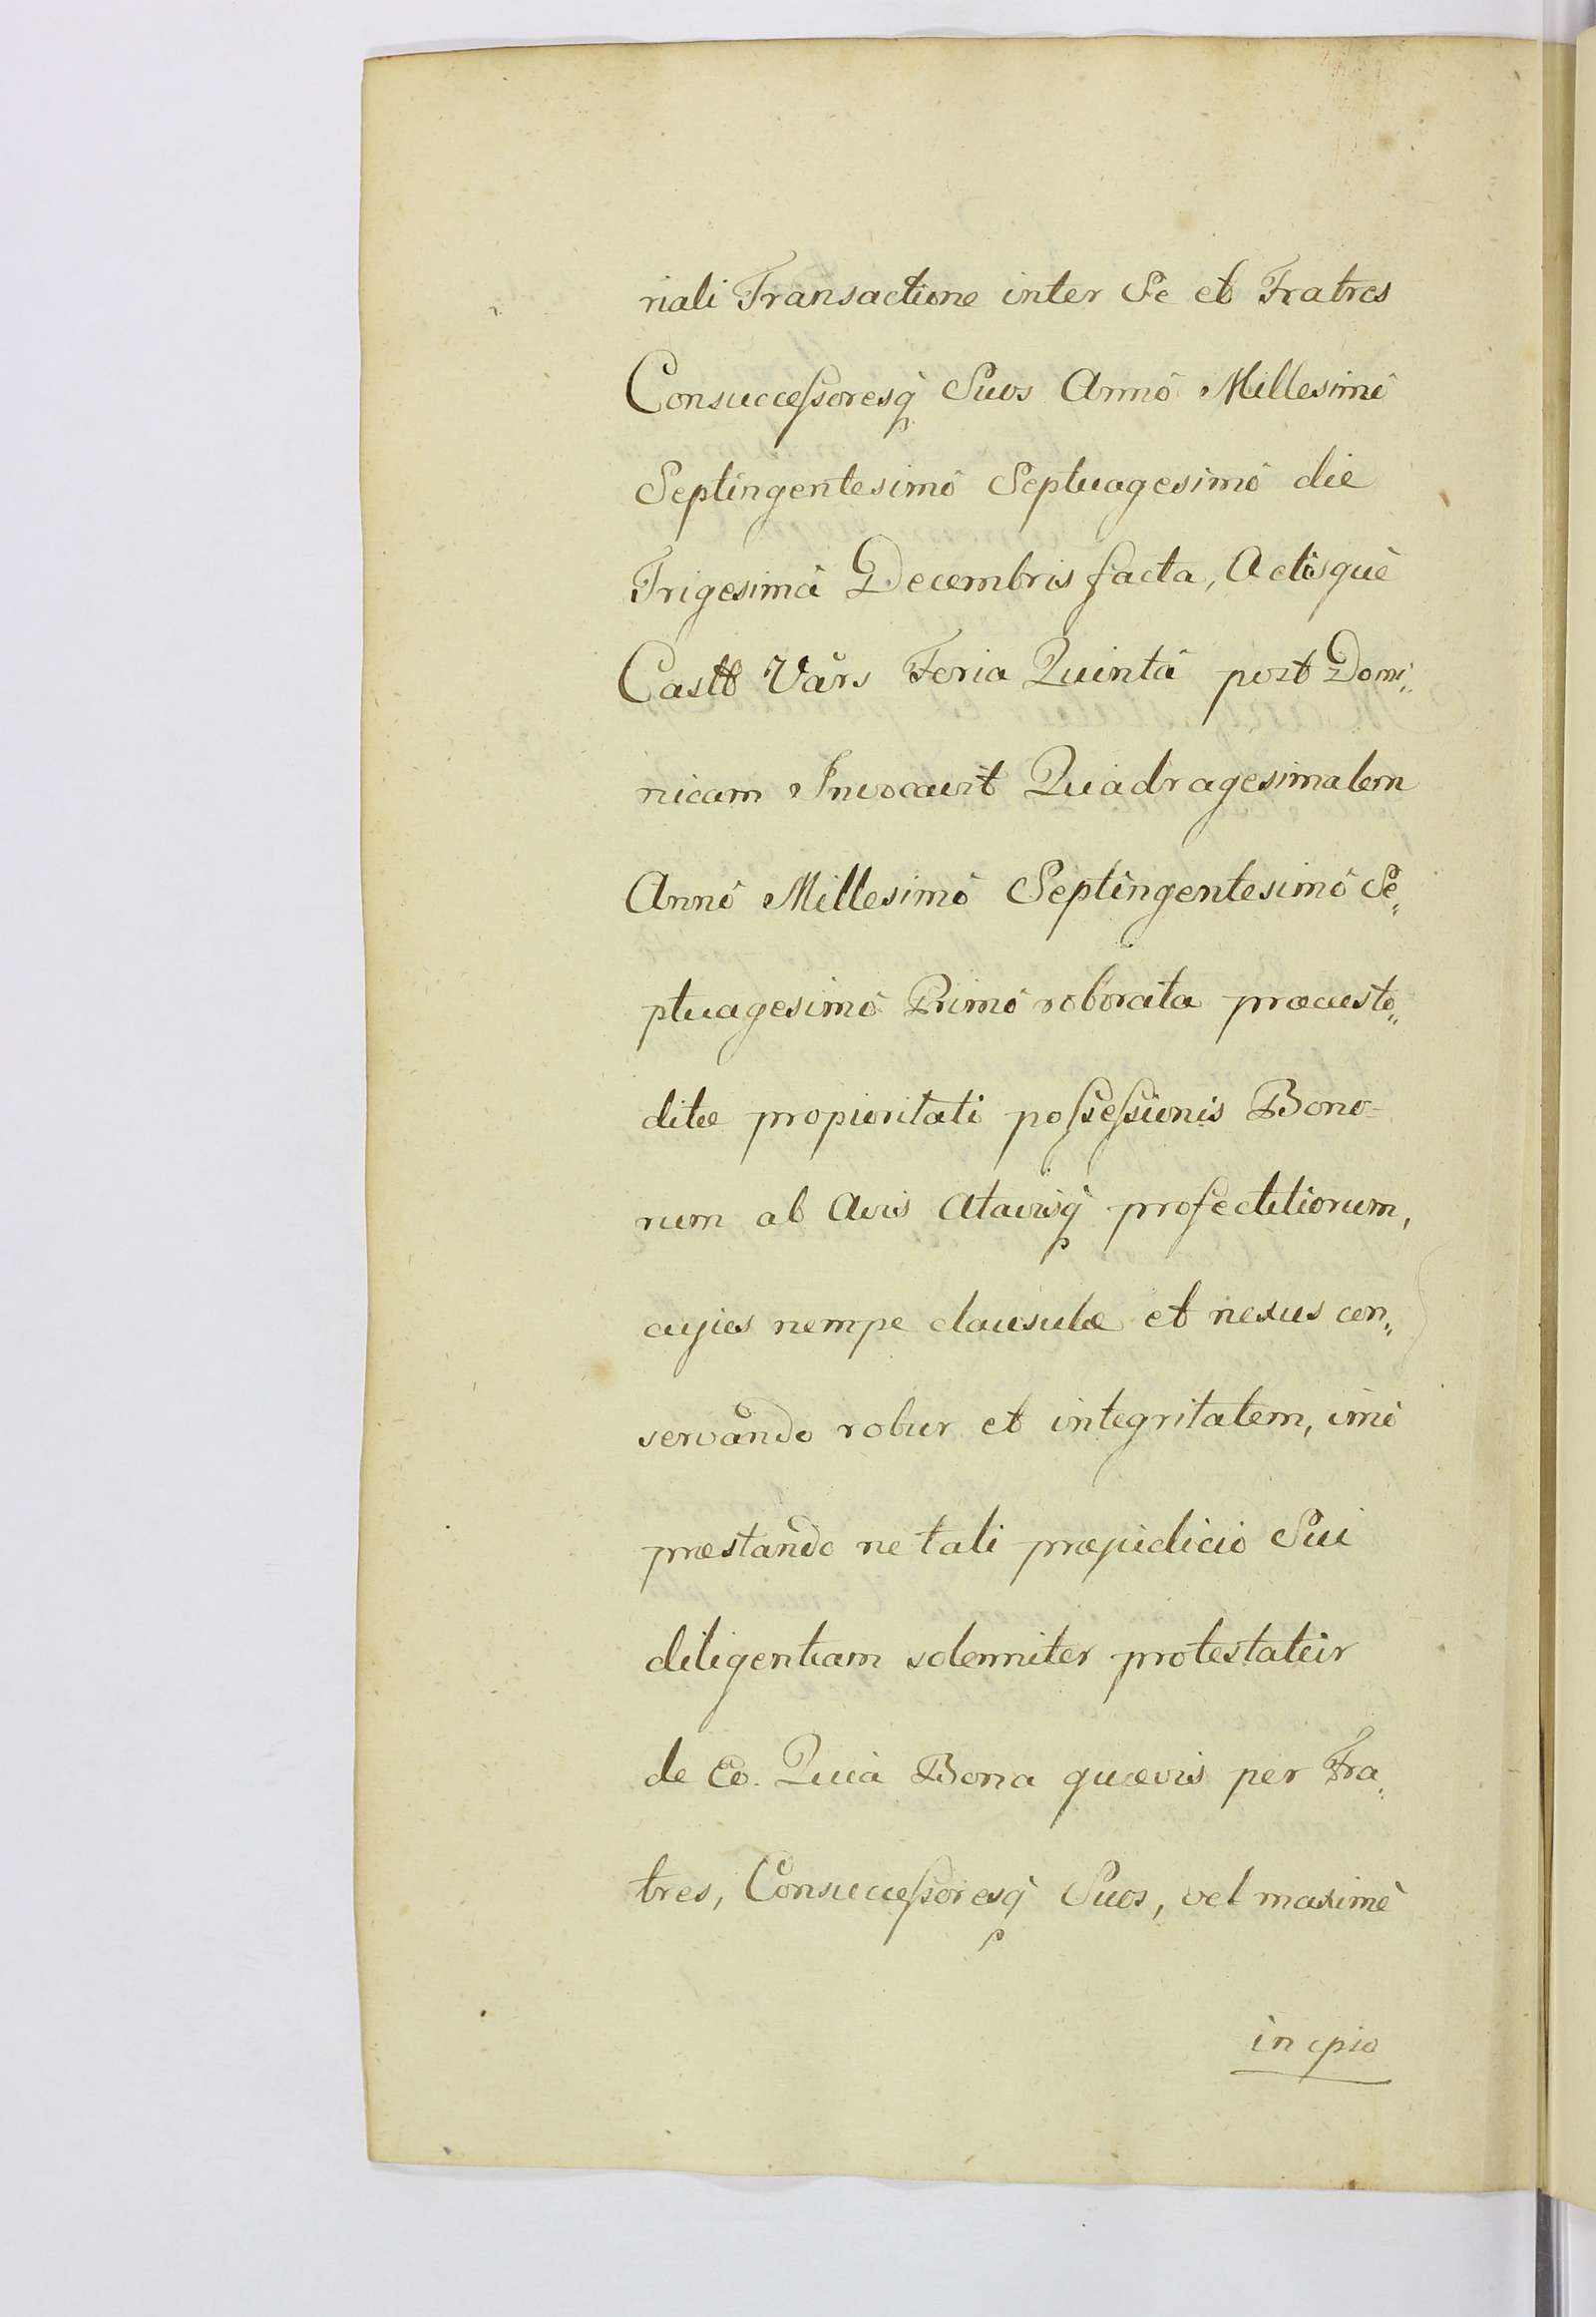 riali Transactione inter Se et Fratres
Consucceſsoresq̀ Suos Annô Millesimô
Septingentesimô Septuagesimô die
Trigesimâ Decembris facta, Actisquè
Castb Vars Feria Quintâ post Domi„
nicam Invocavit Quadragesimalem
Annô Millesimô Septingentesimô Se„
ptuagesimô Primô roborata præcusto„
ditæ propioritati poſseſsionis Bono-
rum ab Avis Atavisq̀ profectitiorum,
cujus nempe clausulæ et nexus con„
servando robur et integritatem, imò
præstando ne tali præjudicio Sui
diligentiam solenniter protestatur
de Eo. Quia Bona quævis per Fra„
tres, Consucceſsoresq̀ Suos, vel maximè
in cpio